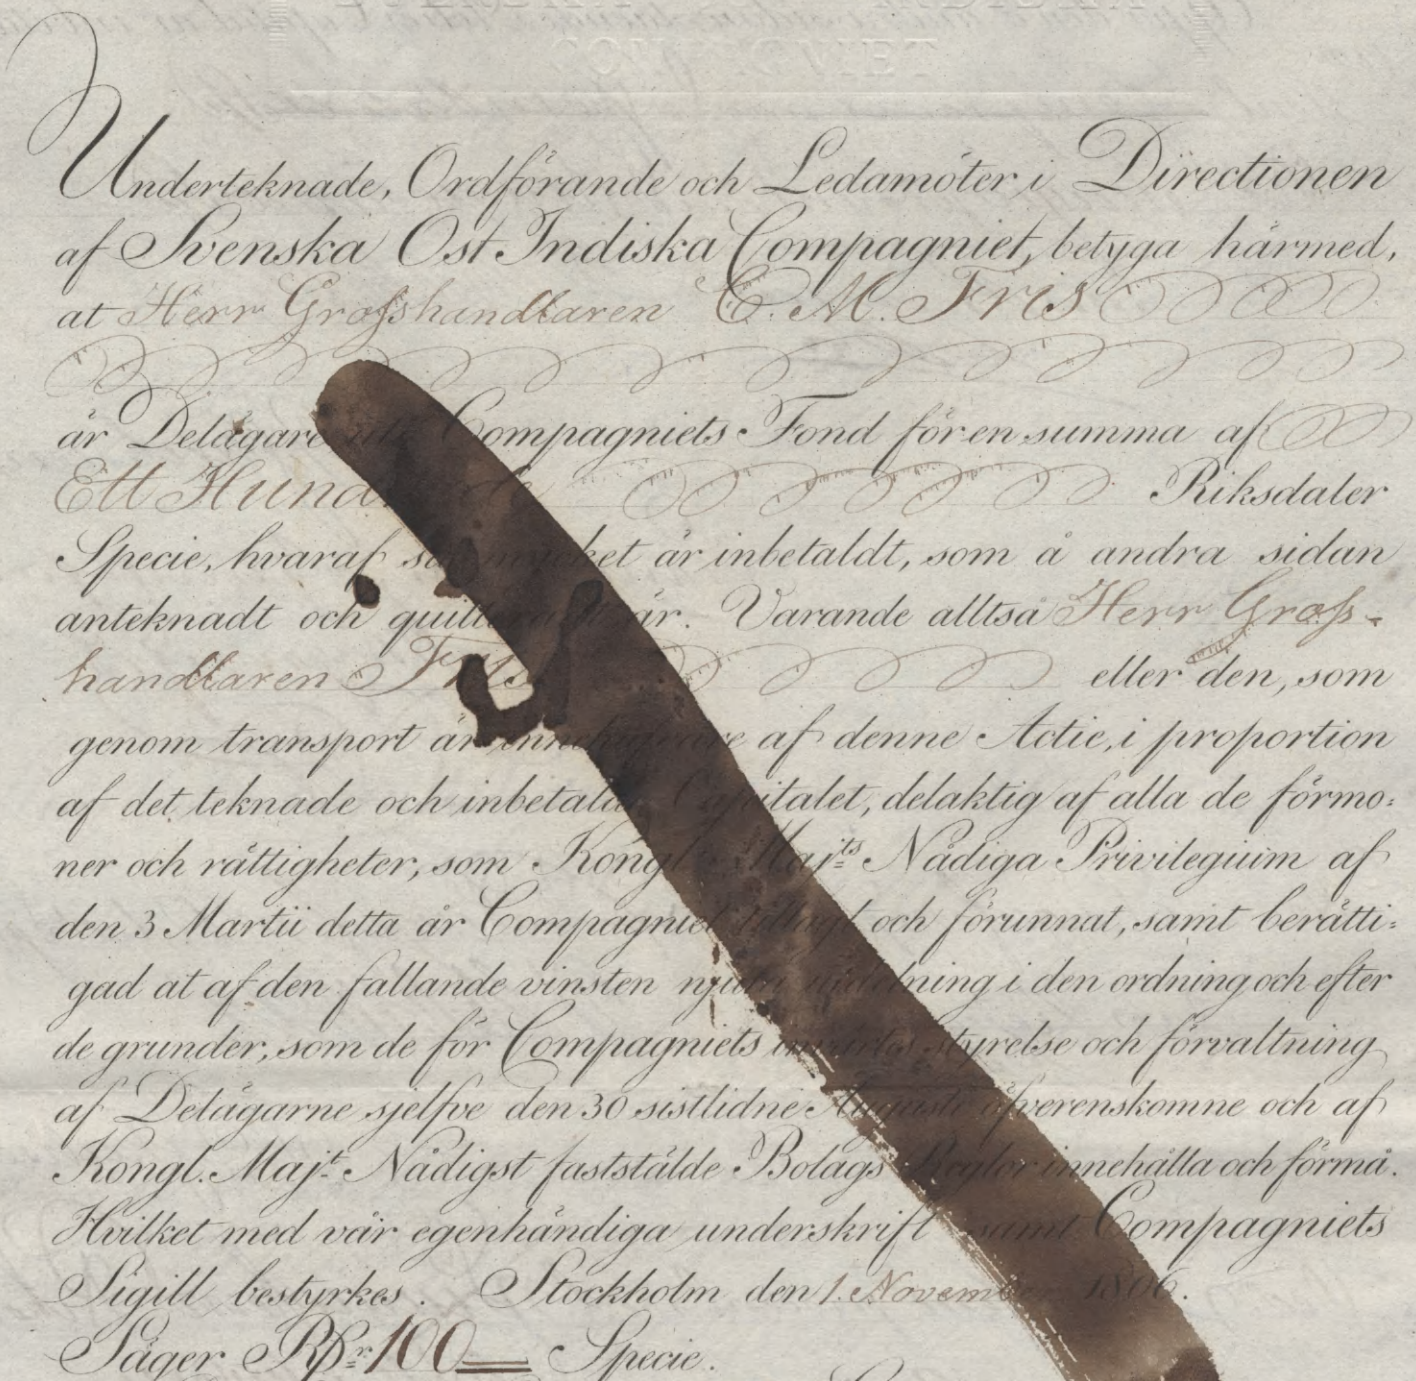 COMPAGNIET
Underteknade, Ordförande och Ledamöter i Directionen
af Svenska Ost Indiska Compagniet, betyga härmed,
at Herr Grosshandlaren C. M. Fris
är Delägare uti Compagniets Fond för en summa af
Ett Hundrade Riksdaler
Specie, hvaraf så mycket är inbetaldt, som å andra sidan
anteknadt och quitteradt är. Varande alltså Herr Gross-
handlaren Fris eller den, som
genom transport är innehafvare af denne Actie, i proportion
af det teknade och inbetalda Capitalet, delaktig af alla de förmo-
ner och rättigheter, som Kongl. Maj:ts Nådiga Privilegium af
den 3 Martii detta år Compagniet tillagt och förunnat, samt berätti-
gad at af den fallande vinsten njuta utdelning i den ordning och efter
de grunder, som de för Compagniets inværtes styrelse och förvaltning
af Delägarne sjelfve den 30 sistlidne Augusti öfverenskomne och af
Kongl. Maj:t Nådigst faststälde Bolags Reglor innehålla och förmå.
Hvilket med vår egenhändiga underskrift samt Compagniets
Sigill bestyrkes. Stockholm den 1. November 1806.
Säger R:dr 100 Specie.